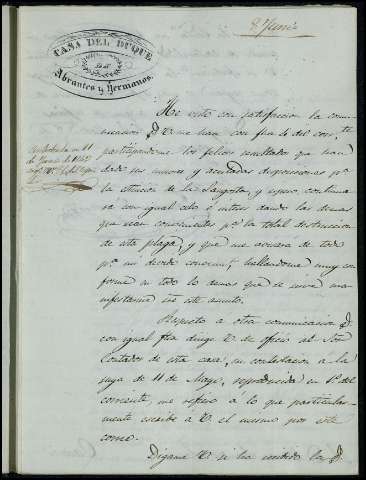 8 Junio
CASA DEL DUQUE
DE
Abrantes y Hermanos.
He visto con satisfaccion la comu-
nicacion q. V. me han con fecha 4 del corr.te
participandome los felices resultados que han
dado sus nuevas y acertadas disposiciones p.a
la estincion de la langosta, y espero continua-
rá con igual celo é interes dando las demas
que sean convenientes p.a la total destruccion
de esta plaga, y que me avisará de todo
p.a mi devido conocim.to hallandome muy con-
forme en todo lo demas que se sirve ma-
nifestarme en este asunto.
Respecto á otra comunicacion q.
con igual fha dirige V. de oficio al Sor
Contador de esta casa, en contestacion á la
suya de 11 de Mayo, reproducida en 1.o del
corriente, me refiero á lo que particular-
mente escribe á V. el mismo por este
correo.
Digame V. si ha recibido los
Contestada en 11
de Junio de 1842